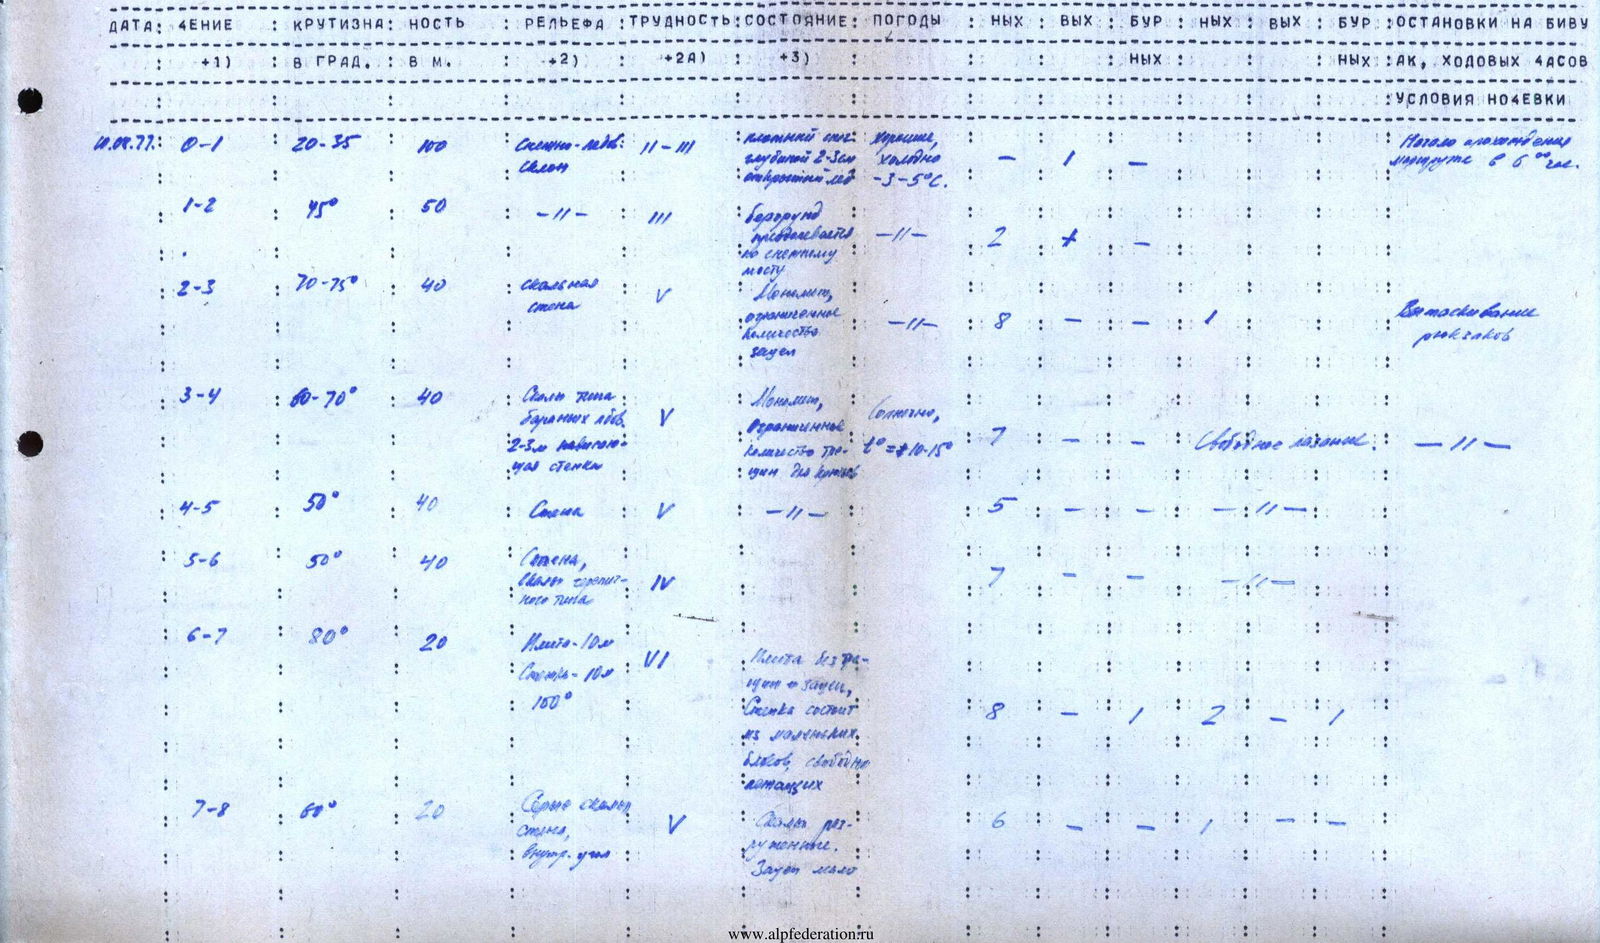 ДАТА: 4ЕНИЕ : КРУТИЗНА: НОСТЬ : РЕЛЬЕФА :ТРУДНОСТЬ:СОСТОЯНИЕ: ПОГОДЫ : НЫХ : ВЫХ : БУР : НЫХ : ВЫХ : БУР :ОСТАНОВКИ НА БИВУ
+1) : В ГРАД. : В М. : +2) : +2А) : +3) : : : : НЫХ : : : НЫХ :АК, ХОДОВЫХ 4АСОВ
:УСЛОВИЯ НО4ЕВКИ
10.08.77. 0-1 20-35 100 Снежно-ледов. склон II-III плотный снег глубиной 2-3см открытый лед хорошие, холодно -3-5°С. — 1 — Начало прохождения маршрута в 6 00 час.
1-2 45° 50 —//— III бергрунд преодолевается по снежному мосту —//— 2 + —
2-3 70-75° 40 скальная стена V Монолит, ограниченное количество зацеп —//— 8 — — 1 Вытаскивание рюкзаков
3-4 60-70° 40 Скалы типа бараньих лбов. 2-3м нависающая стенка V Монолит, ограниченное количество трещин для крючьев Солнечно, t°=+10-15° 7 — — Свободное лазание. —//—
4-5 50° 40 Стена V —//— 5 — — —//—
5-6 50° 40 Стена, скалы черепичного типа IV 7 — — —//—
6-7 80° 20 Плита-10м Стенка-10м 100° VI Плита без трещин и зацеп, Стенка состоит из маленьких блоков, свободно лежащих 8 — 1 2 — 1
7-8 60° 20 Серые скалы стена, внутр. угол V Скалы разрушенные. Зацеп мало 6 — — 1 — —
www.alpfederation.ru